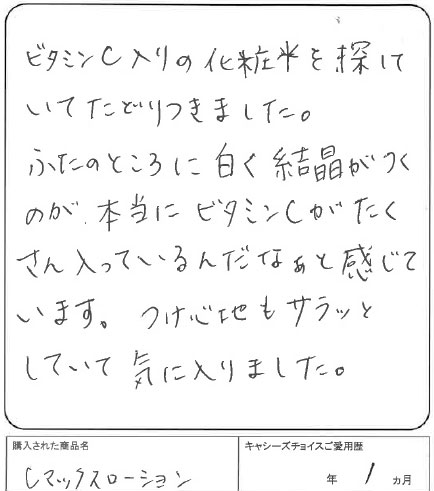 ビタミンC入りの化粧水を探して
いてたどりつきました。
ふたのところに白く結晶がつく
のが、本当にビタミンCがたく
さん入っているんだなぁと感じて
います。つけ心地もサラッと
していて気に入りました。
購入された商品名
Cマックスローション
キャシーズチョイスご愛用歴
年 1 ヵ月